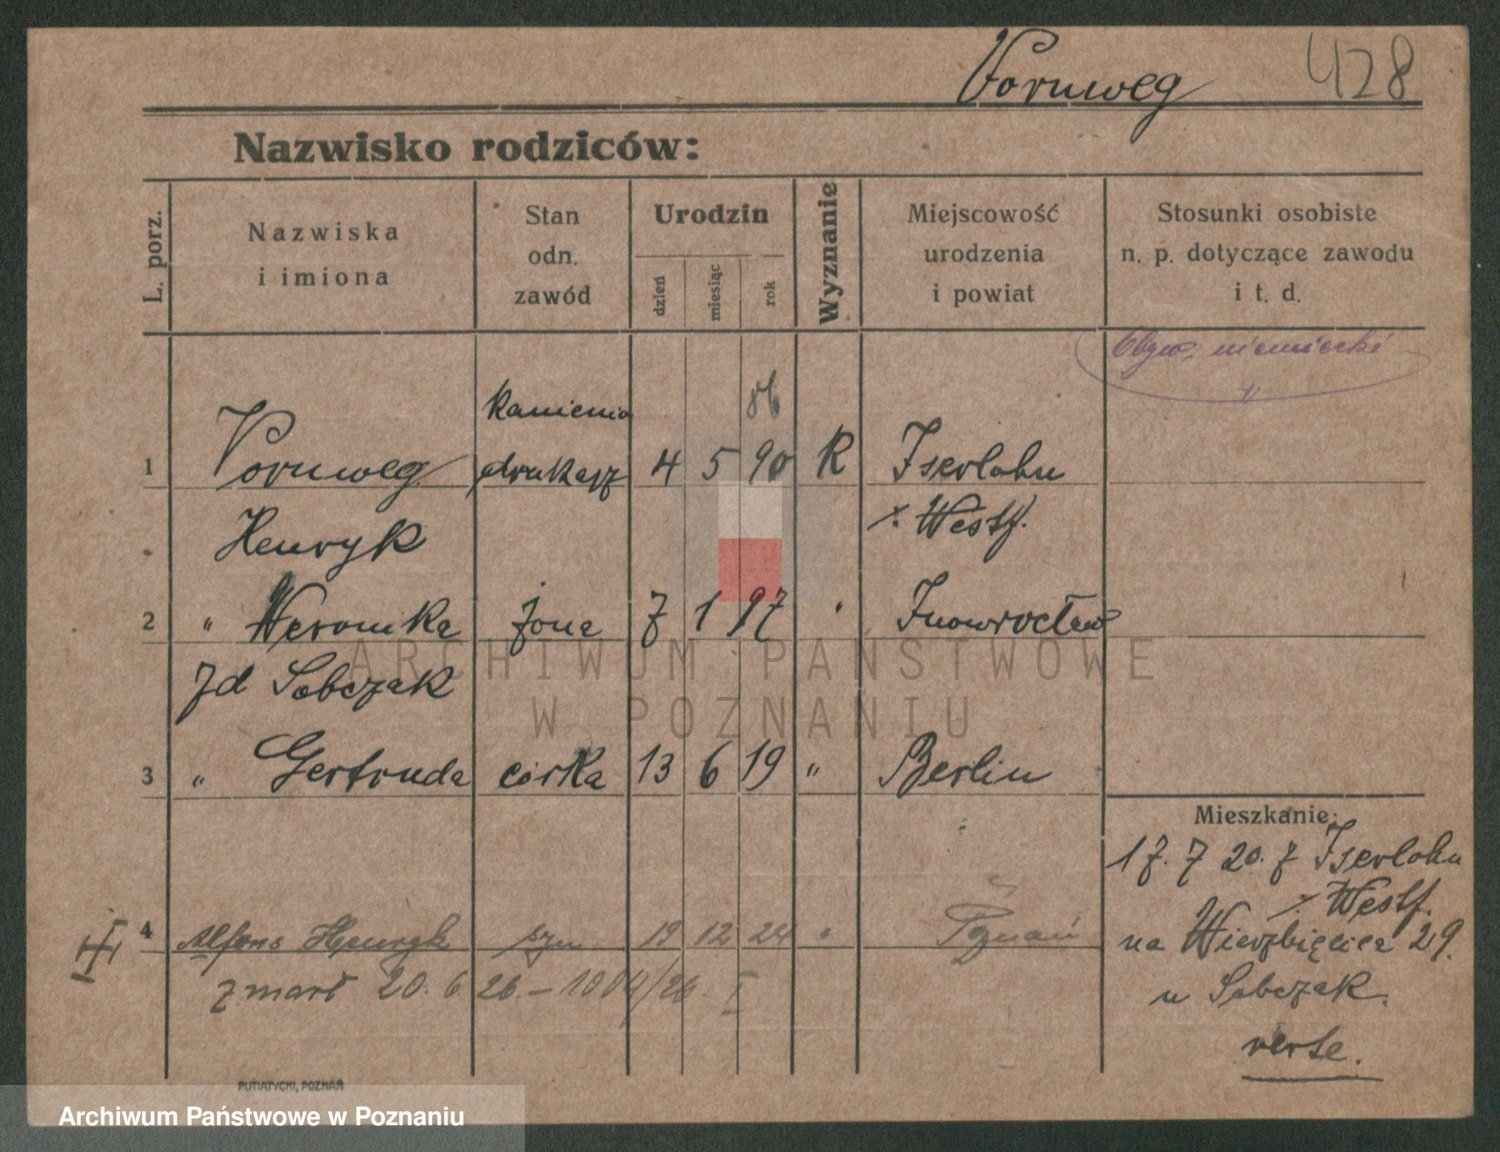 Vornweg 428
Nazwisko rodziców:
L. porz.
Nazwiska
i imiona
Stan
odn.
zawód
Urodzin
dzień
miesiąc
rok
Wyznanie
Miejscowość
urodzenia
i powiat
Stosunki osobiste
n. p. dotyczące zawodu
i t. d.
Obyw. niemiecki
kamienio 86
1 Vornweg drukarz 4 5 90 K Iserlohn
Henryk i. Westf.
2 " Weronika żona 7 1 97 " Inowrocław
zd Sobczak
3 " Gertruda córka 13 6 19 " Berlin
Mieszkanie:
17. 7 20. z Iserlohn
i. Westf.
4 Alfons Henryk syn 19 12 24 " Poznań
na Wierzbięcice 29.
zmarł 20. 6. 26. – 1004/26. I
u Sobczak.
verte.
PUTIATYCKI, POZNAŃ
ARCHIWUM PAŃSTWOWE
W POZNANIU
Archiwum Państwowe w Poznaniu